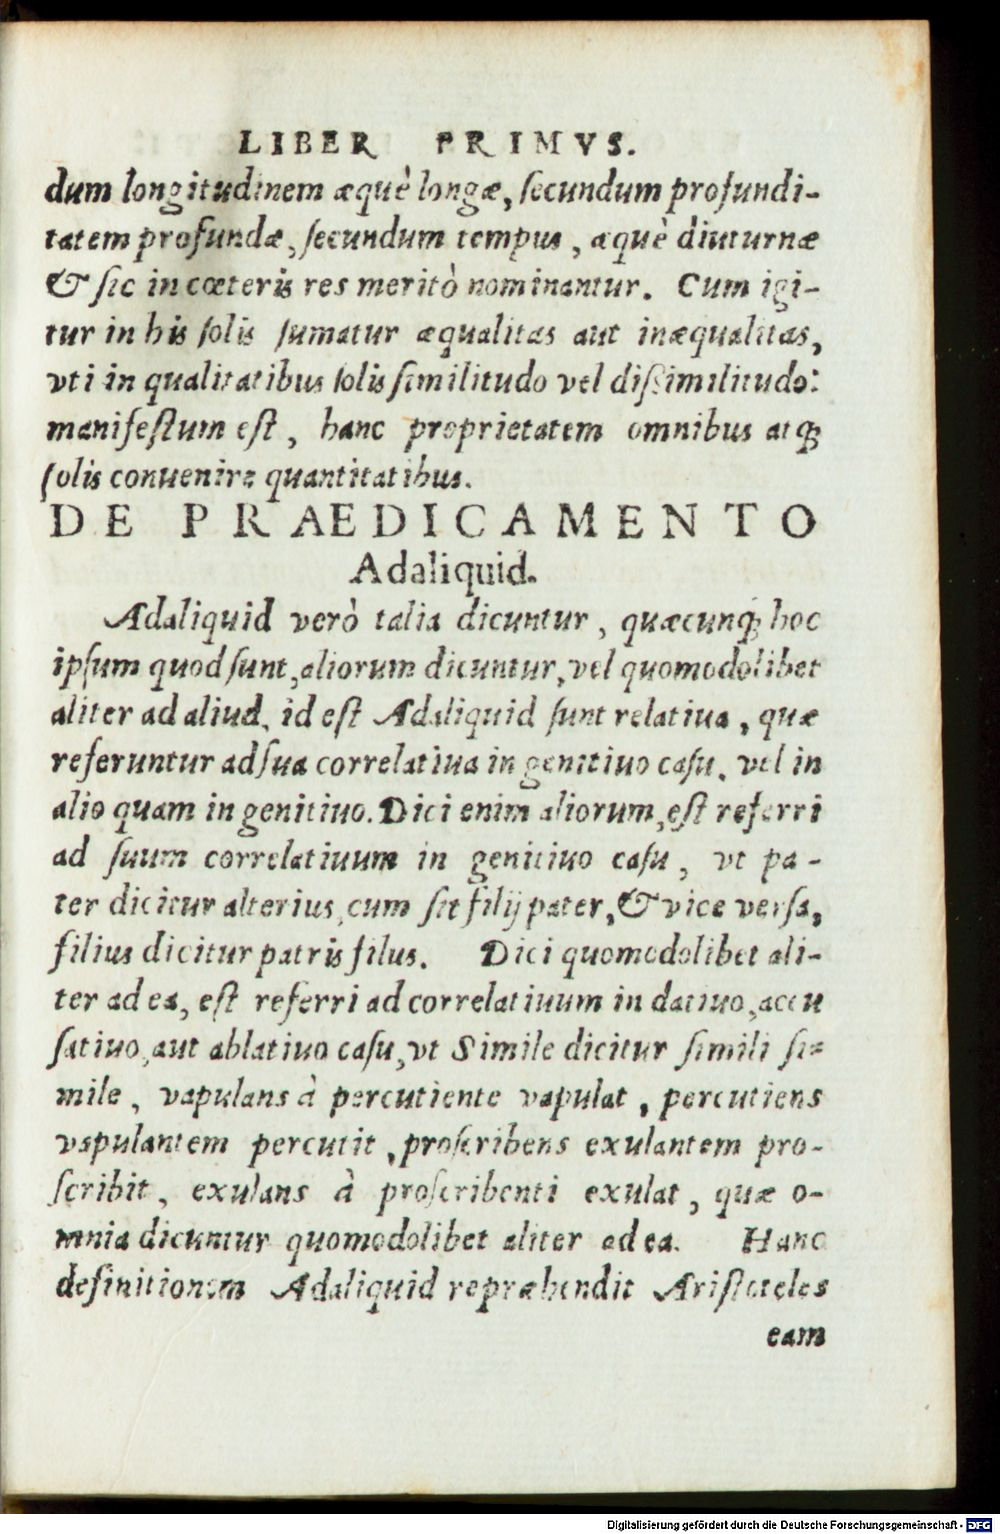 LIBER PRIMVS.
dum longitudinem æquè longæ, ſecundum profundi-
tatem profundæ, ſecundum tempus, æquè diuturnæ
& ſic in cœteris res meritò nominantur. Cum igi-
tur in his ſolis ſumatur æqualitas aut inæqualitas,
vti in qualitatibus ſolis ſimilitudo vel diſſimilitudo:
manifeſtum eſt, hanc proprietatem omnibus atq;
ſolis conuenire quantitatibus.
DE PRAEDICAMENTO
Adaliquid.
Adaliquid verò talia dicuntur, quæcunq; hoc
ipſum quod ſunt, aliorum dicuntur, vel quomodolibet
aliter ad aliud, id eſt Adaliquid ſunt relatiua, quæ
referuntur ad ſua correlatiua in genitiuo caſu, vel in
alio quam in genitiuo. Dici enim aliorum, eſt referri
ad ſuum correlatiuum in genitiuo caſu, vt pa-
ter dicitur alterius, cum ſit filij pater, & vice verſa,
filius dicitur patris filus. Dici quomodolibet ali-
ter ad ea, eſt referri ad correlatiuum in datiuo, accu
ſatiuo, aut ablatiuo caſu, vt Simile dicitur ſimili ſi-
mile, vapulans à percutiente vapulat, percutiens
vapulantem percutit, proſcribens exulantem pro-
ſcribit, exulans à proſcribenti exulat, quæ o-
mnia dicuntur quomodolibet aliter ad ea. Hanc
definitionem Adaliquid repræhendit Ariſtoteles
eam
Digitalisierung gefördert durch die Deutsche Forschungsgemeinschaft - DFG